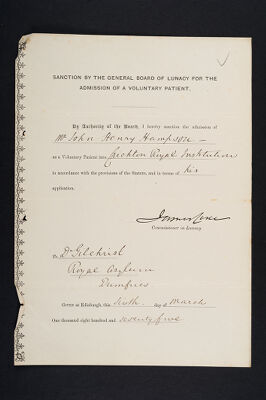 SANCTION BY THE GENERAL BOARD OF LUNACY FOR THE
ADMISSION OF A VOLUNTARY PATIENT.
By Authority of the Board, I hereby sanction the admission of
Mr John Henry Hampson
as a Voluntary Patient into Crichton Royal Institution
in accordance with the provisions of the Statute, and in terms of his
application.
Commissioner in Lunacy
To Dr Gilchrist
Royal Asylum
Dumfries
Given at Edinburgh, this Sixth day of March
One thousand eight hundred and seventy five